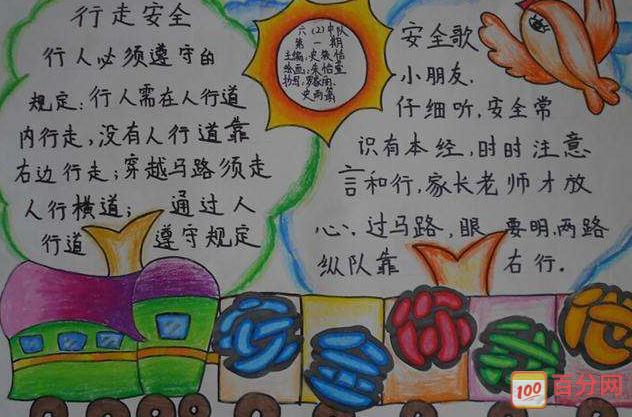 行走安全
行人必须遵守的
规定：行人需在人行道
内行走，没有人行道靠
右边行走；穿越马路须走
人行横道；通过人
行道 遵守规定
六（2）中队
第一期
主编：史
绘画：朱怡莹
史雨菡
安全歌
小朋友，
仔细听，安全常
识有本经，时时注意
言和行，家长老师才放
心。过马路，眼要明，两路
纵队靠右行。
安全你我他
100
百分网